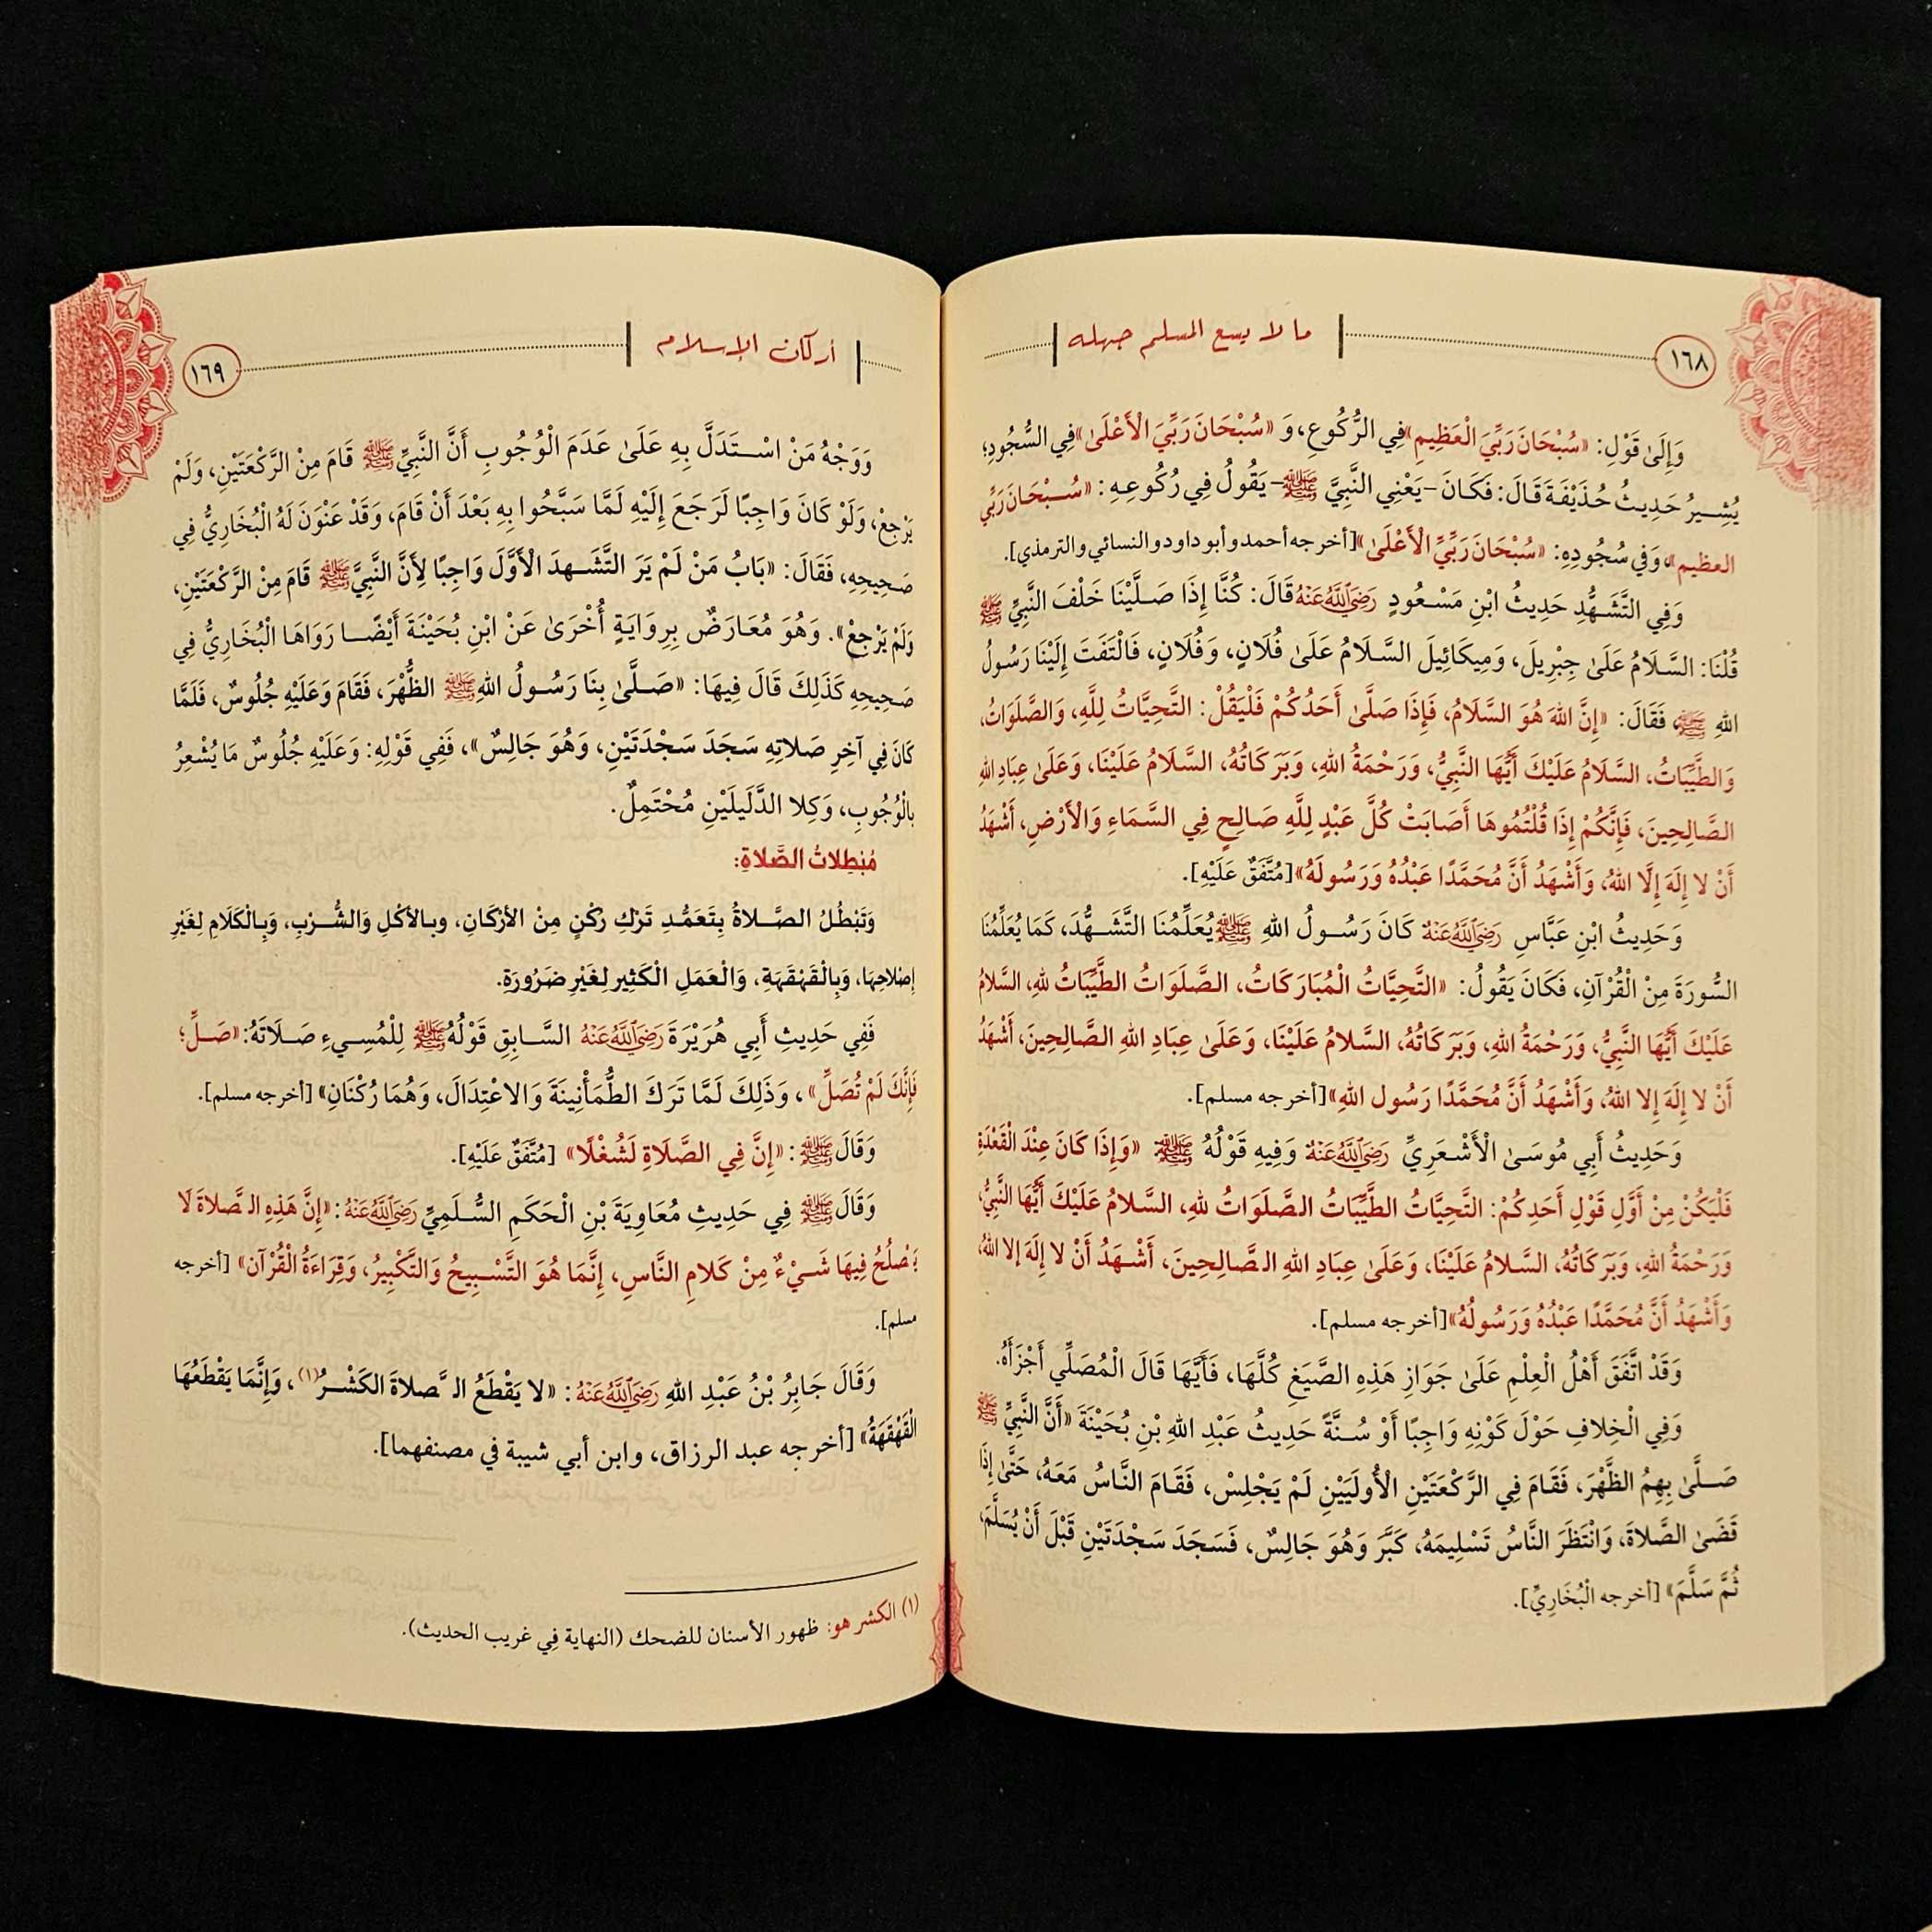 ١٦٨
ما لا يسع المسلم جهله
وَإِلَىٰ قَوْلِ: «سُبْحَانَ رَبِّيَ الْعَظِيمِ» فِي الرُّكُوعِ، وَ «سُبْحَانَ رَبِّيَ الْأَعْلَىٰ» فِي السُّجُودِ؛
يُشِيرُ حَدِيثُ حُذَيْفَةَ قَالَ: فَكَانَ -يَعْنِي النَّبِيَّ ﷺ- يَقُولُ فِي رُكُوعِهِ: «سُبْحَانَ رَبِّيَ
العظيم»، وَفِي سُجُودِهِ: «سُبْحَانَ رَبِّيَ الْأَعْلَىٰ» [أخرجه أحمد وأبو داود والنسائي والترمذي].
وَفِي التَّشَهُّدِ حَدِيثُ ابْنِ مَسْعُودٍ رَضِيَ اللَّهُ عَنْهُ قَالَ: كُنَّا إِذَا صَلَّيْنَا خَلْفَ النَّبِيِّ ﷺ
قُلْنَا: السَّلَامُ عَلَىٰ جِبْرِيلَ، وَمِيكَائِيلَ السَّلَامُ عَلَىٰ فُلَانٍ، وَفُلَانٍ، فَالْتَفَتَ إِلَيْنَا رَسُولُ
اللهِ ﷺ فَقَالَ: «إِنَّ اللهَ هُوَ السَّلَامُ، فَإِذَا صَلَّىٰ أَحَدُكُمْ فَلْيَقُلْ: التَّحِيَّاتُ لِلَّهِ، وَالصَّلَوَاتُ،
وَالطَّيِّبَاتُ، السَّلَامُ عَلَيْكَ أَيُّهَا النَّبِيُّ، وَرَحْمَةُ اللهِ، وَبَرَكَاتُهُ، السَّلَامُ عَلَيْنَا، وَعَلَىٰ عِبَادِ اللهِ
الصَّالِحِينَ، فَإِنَّكُمْ إِذَا قُلْتُمُوهَا أَصَابَتْ كُلَّ عَبْدٍ لِلَّهِ صَالِحٍ فِي السَّمَاءِ وَالْأَرْضِ، أَشْهَدُ
أَنْ لا إِلَهَ إِلَّا اللهُ، وَأَشْهَدُ أَنَّ مُحَمَّدًا عَبْدُهُ وَرَسُولُهُ» [مُتَّفَقٌ عَلَيْهِ].
وَحَدِيثُ ابْنِ عَبَّاسٍ رَضِيَ اللَّهُ عَنْهُ كَانَ رَسُولُ اللهِ ﷺ يُعَلِّمُنَا التَّشَهُّدَ، كَمَا يُعَلِّمُنَا
السُّورَةَ مِنْ الْقُرْآنِ، فَكَانَ يَقُولُ: «التَّحِيَّاتُ الْمُبَارَكَاتُ، الصَّلَوَاتُ الطَّيِّبَاتُ للهِ، السَّلامُ
عَلَيْكَ أَيُّهَا النَّبِيُّ، وَرَحْمَةُ اللهِ، وَبَرَكَاتُهُ، السَّلامُ عَلَيْنَا، وَعَلَىٰ عِبَادِ اللهِ الصَّالِحِينَ، أَشْهَدُ
أَنْ لا إِلَهَ إِلا اللهُ، وَأَشْهَدُ أَنَّ مُحَمَّدًا رَسُول اللهِ» [أخرجه مسلم].
وَحَدِيثُ أَبِي مُوسَىٰ الْأَشْعَرِيِّ رَضِيَ اللَّهُ عَنْهُ وَفِيهِ قَوْلُهُ ﷺ «وَإِذَا كَانَ عِنْدَ الْقَعْدَةِ
فَلْيَكُنْ مِنْ أَوَّلِ قَوْلِ أَحَدِكُمْ: التَّحِيَّاتُ الطَّيِّبَاتُ الصَّلَوَاتُ للهِ، السَّلامُ عَلَيْكَ أَيُّهَا النَّبِيُّ،
وَرَحْمَةُ اللهِ، وَبَرَكَاتُهُ، السَّلامُ عَلَيْنَا، وَعَلَىٰ عِبَادِ اللهِ الصَّالِحِينَ، أَشْهَدُ أَنْ لا إِلَهَ إِلا اللهُ،
وَأَشْهَدُ أَنَّ مُحَمَّدًا عَبْدُهُ وَرَسُولُهُ» [أخرجه مسلم].
وَقَدْ اتَّفَقَ أَهْلُ الْعِلْمِ عَلَىٰ جَوَازِ هَذِهِ الصَّيَغِ كُلِّهَا، فَأَيَّهَا قَالَ الْمُصَلِّي أَجْزَأَهُ.
وَفِي الْخِلافِ حَوْلَ كَوْنِهِ وَاجِبًا أَوْ سُنَّةً حَدِيثُ عَبْدِ اللهِ بْنِ بُحَيْنَةَ «أَنَّ النَّبِيِّ ﷺ
صَلَّىٰ بِهِمُ الظُّهْرَ، فَقَامَ فِي الرَّكْعَتَيْنِ الْأُولَيَيْنِ لَمْ يَجْلِسْ، فَقَامَ النَّاسُ مَعَهُ، حَتَّىٰ إِذَا
قَضَىٰ الصَّلاةَ، وَانْتَظَرَ النَّاسُ تَسْلِيمَهُ، كَبَّرَ وَهُوَ جَالِسٌ، فَسَجَدَ سَجْدَتَيْنِ قَبْلَ أَنْ يُسَلِّمَ،
ثُمَّ سَلَّمَ» [أخرجه الْبُخَارِيُّ].
أركان الإسلام
١٦٩
وَوَجْهُ مَنْ اسْتَدَلَّ بِهِ عَلَىٰ عَدَمَ الْوُجُوبِ أَنَّ النَّبِيِّ ﷺ قَامَ مِنْ الرَّكْعَتَيْنِ، وَلَمْ
يَرْجِعْ، وَلَوْ كَانَ وَاجِبًا لَرَجَعَ إِلَيْهِ لَمَّا سَبَّحُوا بِهِ بَعْدَ أَنْ قَامَ، وَقَدْ عَنْوَنَ لَهُ الْبُخَارِيُّ فِي
صَحِيحِهِ، فَقَالَ: «بَابُ مَنْ لَمْ يَرَ التَّشَهدَ الْأَوَّلَ وَاجِبًا لِأَنَّ النَّبِيَّ ﷺ قَامَ مِنْ الرَّكْعَتَيْنِ،
وَلَمْ يَرْجِعْ». وَهُوَ مُعَارَضٌ بِرِوَايَةٍ أُخْرَىٰ عَنْ ابْنِ بُحَيْنَةَ أَيْضًا رَوَاهَا الْبُخَارِيُّ فِي
صَحِيحِهِ كَذَلِكَ قَالَ فِيهَا: «صَلَّىٰ بِنَا رَسُولُ اللهِ ﷺ الظُّهْرَ، فَقَامَ وَعَلَيْهِ جُلُوسٌ، فَلَمَّا
كَانَ فِي آخِرِ صَلاتِهِ سَجَدَ سَجْدَتَيْنِ، وَهُوَ جَالِسٌ»، فَفِي قَوْلِهِ: وَعَلَيْهِ جُلُوسٌ مَا يُشْعِرُ
بِالْوُجُوبِ، وَكِلا الدَّلَيلَيْنِ مُحْتَمِلٌ.
مُبْطِلاتُ الصَّلاةِ:
وَتَبْطُلُ الصَّلاةُ بِتَعَمُّدِ تَرْكِ رُكْنٍ مِنْ الأرْكَانِ، وبالأكْلِ وَالشُّرْبِ، وَبِالْكَلَامِ لِغَيْرِ
إصْلاحِهَا، وَبِالْقَهْقَهَةِ، وَالْعَمَلِ الْكَثِيرِ لِغَيْرِ ضَرُورَةٍ.
فَفِي حَدِيثِ أَبِي هُرَيْرَةَ رَضِيَ اللَّهُ عَنْهُ السَّابِقِ قَوْلُهُ ﷺ لِلْمُسِيءِ صَلَاتَهُ: «صَلِّ؛
فَإِنَّكَ لَمْ تُصَلِّ»، وَذَلِكَ لَمَّا تَرَكَ الطُّمَأْنِينَةَ وَالاعْتِدَالَ، وَهُمَا رُكْنَانِ» [أخرجه مسلم].
وَقَالَ ﷺ: «إِنَّ فِي الصَّلَاةِ لَشُغْلًا» [مُتَّفَقٌ عَلَيْهِ].
وَقَالَ ﷺ فِي حَدِيثِ مُعَاوِيَةَ بْنِ الْحَكَمِ السُّلَمِيِّ رَضِيَ اللَّهُ عَنْهُ: «إِنَّ هَذِهِ الصَّلاةَ لَا
يَصْلُحُ فِيهَا شَيْءٌ مِنْ كَلامِ النَّاسِ، إِنَّمَا هُوَ التَّسْبِيحُ وَالتَّكْبِيرُ، وَقِرَاءَةُ الْقُرْآن» [أخرجه
مسلم].
وَقَالَ جَابِرُ بْنُ عَبْدِ اللهِ رَضِيَ اللَّهُ عَنْهُ: «لا يَقْطَعُ الصَّلاةَ الكَشْرُ(١)، وَإِنَّمَا يَقْطَعُهَا
الْقَهْقَهَةُ» [أخرجه عبد الرزاق، وابن أبي شيبة في مصنفهما].
(١) الكشر هو: ظهور الأسنان للضحك (النهاية فِي غريب الحديث).